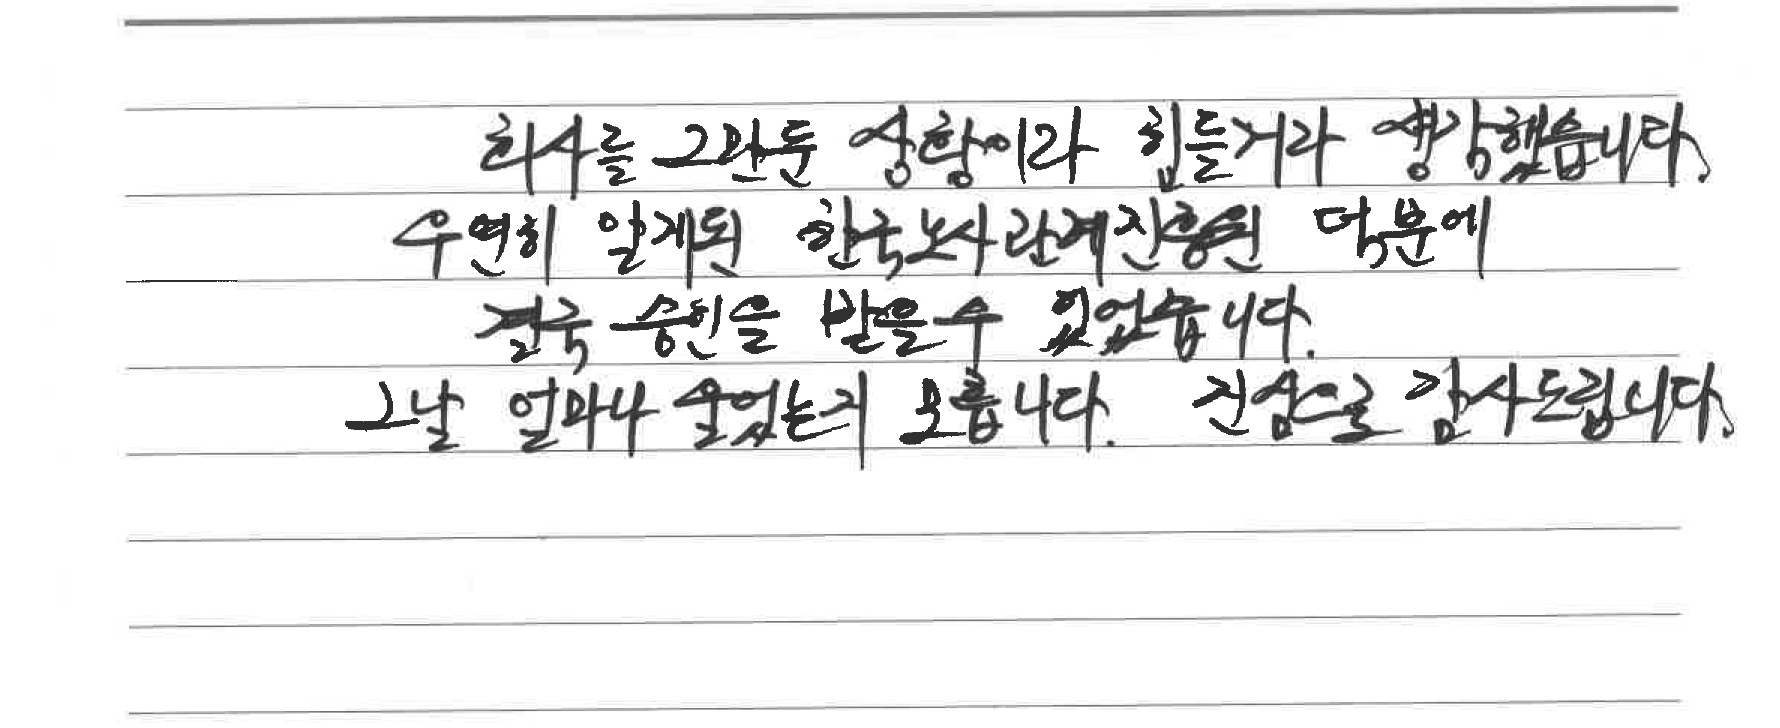 회사를 그만둔 상황이라 힘들거라 생각했습니다.
우연히 알게된 한국노사관계진흥원 덕분에
결국 승인을 받을수 있었습니다.
그날 얼마나 울었는지 모릅니다. 진심으로 감사드립니다.